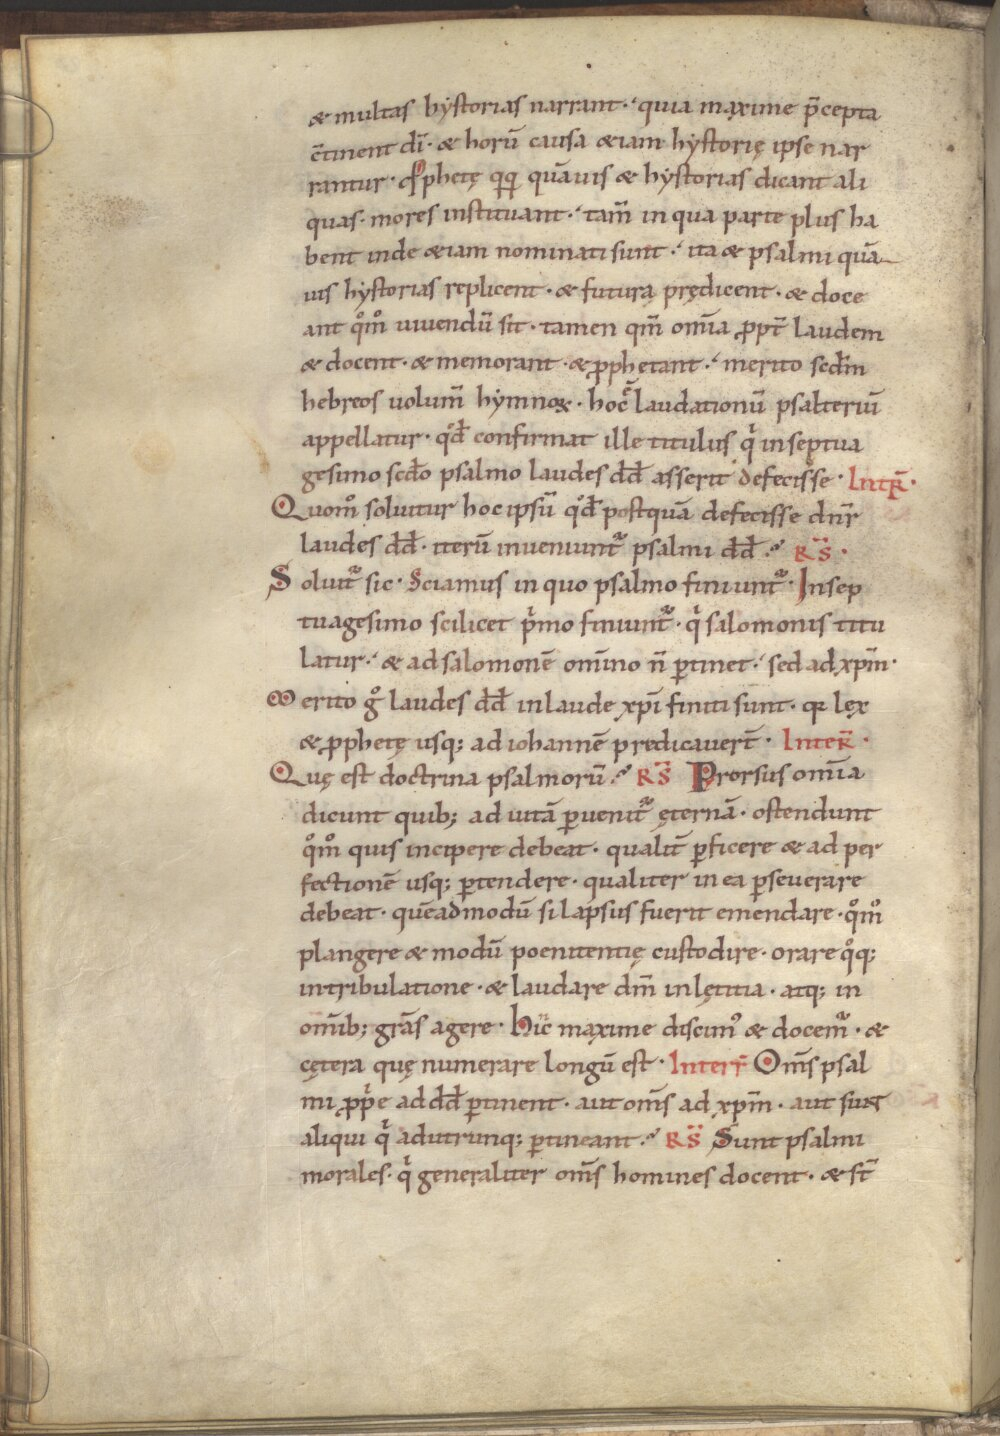 & multas hystorias narrant· quia maxime p̄cepta
c̄tinent dī· & horū causa &iam hystorię ipse nar
rantur· p̄phetę qq quāuis & hystorias dicant ali
quas· mores instituant· tam̄ in qua parte plus ha
bent inde &iam nominati sunt· ita & psalmi quā
uis hystorias replicent· & futura prędicent· & doce
ant qͦmͦ uiuendū sit· tamen qm̄ om̄ia ꝓpt̄ laudem
& docent· & memorant· & ꝓphetant· merito scdm̄
hebreos uolum̄ hymnoꝝ· hoc ē laudationū psalteriū
appellatur· qd̄ confirmat ille titulus qͥ in septua
gesimo scdo psalmo laudes dd̄ asserit defecisse· Int̄r·
Quom̊ soluitur hoc ipsū qd̄ postquā defecisse dn̄r
laudes dd̄· iterū inueniunt᷑ psalmi dd̄· R̄S̄·
Soluit᷑ sic· Sciamus in quo psalmo finiunt᷑· In sep
tuagesimo scilicet pͥmo finiunt᷑· qͥ salomonis titu
latur· & ad salomonē om̄ino n̄ ꝑtinet· sed ad xp̄m·
Merito gͦ laudes dd̄ in laude xp̄i finiti sunt· qꝛ lex
& ꝓphetę usq; ad iohannē predicauer̄t· Inter̄·
Quę est doctrina psalmorū· R̄S̄ Prorsus om̄ia
dicunt quib; ad uitā ꝑuenit᷑ ęternā· ostendunt
qͦmͦ quis incipere debeat· qualit̄ ꝑficere & ad per
fectionē usq; ꝑtendere· qualiter in ea ꝑseuerare
debeat· quēadmodū si lapsus fuerit emendare· qͦmͦ
plangere & modū poenitentię custodire· orare qͦq;
in tribulatione· & laudare dm̄ in lętitia· atq; in
om̄ib; gr̄as agere· Hic maxime discimꝰ & docem᷑· &
cętera quę numerare longū est· Interr̄ Om̄s psal
mi ꝓpͥe ad dd̄ ꝑtinent· aut om̄s ad xp̄m· aut sunt
aliqui qͥ ad utrunq; ꝑtineant· R̄S̄ Sunt psalmi
morales· qͥ generaliter om̄s homines docent· & st̄